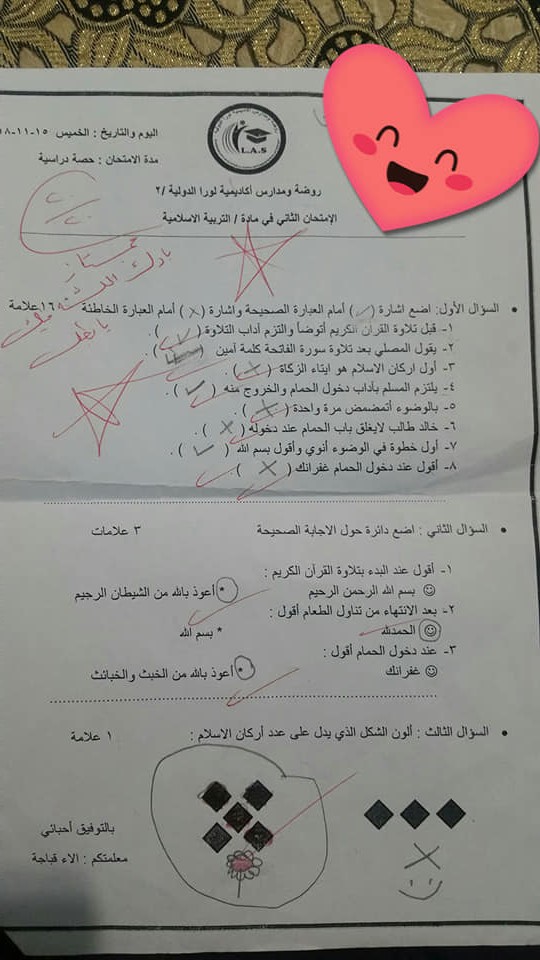 اليوم والتاريخ : الخميس ١٥-١١-١٨
مدة الامتحان : حصة دراسية
L.A.S
روضة ومدارس أكاديمية لورا الدولية /٢
الإمتحان الثاني في مادة / التربية الاسلامية
٢٠/٢٠
ممتاز
بارك الله فيك
يا بطل
السؤال الأول: اضع اشارة (✓) أمام العبارة الصحيحة واشارة (×) أمام العبارة الخاطئة ١٦علامة
١- قبل تلاوة القرآن الكريم أتوضأ والتزم آداب التلاوة (✓).
٢- يقول المصلي بعد تلاوة سورة الفاتحة كلمة آمين (✓).
٣- أول اركان الاسلام هو ايتاء الزكاة (×).
٤- يلتزم المسلم بآداب دخول الحمام والخروج منه (✓).
٥- بالوضوء أتمضمض مرة واحدة (×).
٦- خالد طالب لايغلق باب الحمام عند دخوله (×).
٧- أول خطوة في الوضوء أنوي وأقول بسم الله (✓).
٨- أقول عند دخول الحمام غفرانك (×).
السؤال الثاني : اضع دائرة حول الاجابة الصحيحة ٣ علامات
١- أقول عند البدء بتلاوة القرآن الكريم :
☺ بسم الله الرحمن الرحيم * أعوذ بالله من الشيطان الرجيم
٢- بعد الانتهاء من تناول الطعام أقول :
☺ الحمدلله * بسم الله
٣- عند دخول الحمام أقول :
☺ غفرانك * أعوذ بالله من الخبث والخبائث
السؤال الثالث : ألون الشكل الذي يدل على عدد أركان الاسلام : ١ علامة
بالتوفيق أحبائي
معلمتكم : الاء قباجة